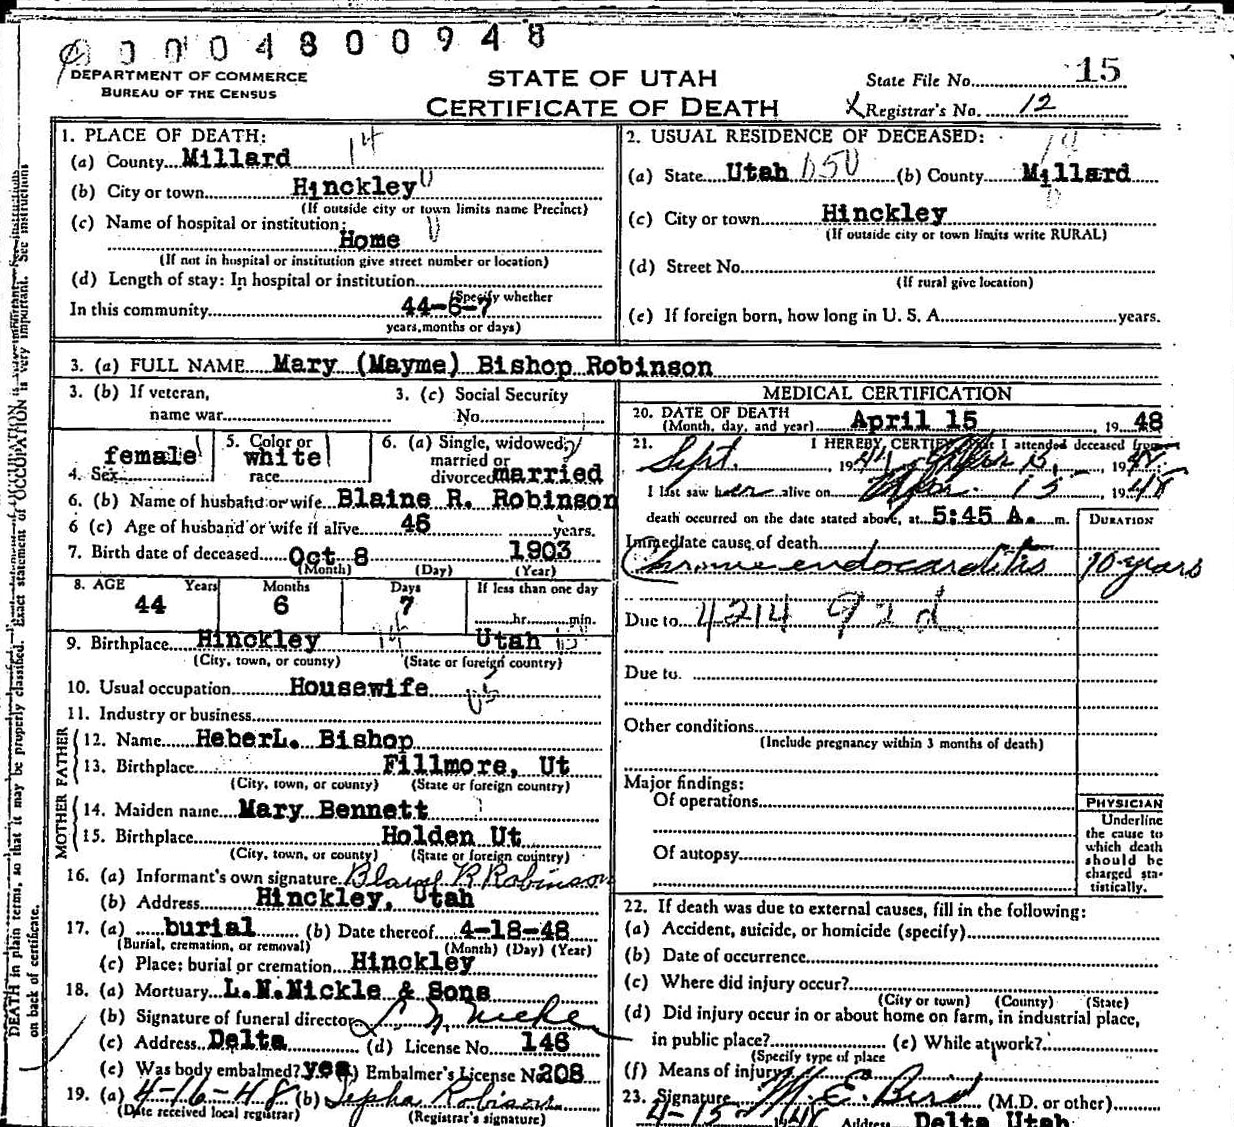 0004800948
DEPARTMENT OF COMMERCE
BUREAU OF THE CENSUS
STATE OF UTAH
CERTIFICATE OF DEATH
State File No. 15
Registrar's No. 12
1. PLACE OF DEATH:
(a) County Millard 14
(b) City or town Hinckley
(If outside city or town limits name Precinct)
(c) Name of hospital or institution:
Home
(If not in hospital or institution give street number or location)
(d) Length of stay: In hospital or institution
(Specify whether
In this community 44-6-7
years, months or days)
2. USUAL RESIDENCE OF DECEASED:
(a) State Utah 050 (b) County Millard
(c) City or town Hinckley
(If outside city or town limits write RURAL)
(d) Street No.
(If rural give location)
(e) If foreign born, how long in U. S. A. years.
3. (a) FULL NAME Mary (Mayme) Bishop Robinson
3. (b) If veteran,
name war
3. (c) Social Security
No.
4. Sex female
5. Color or
race white
6. (a) Single, widowed,
married or
divorced married
6. (b) Name of husband or wife Blaine R. Robinson
6 (c) Age of husband or wife if alive 46 years.
7. Birth date of deceased Oct 8 1903
(Month) (Day) (Year)
8. AGE Years Months Days If less than one day
44 6 7 hr. min.
9. Birthplace Hinckley 14 Utah
(City, town, or county) (State or foreign country)
10. Usual occupation Housewife
11. Industry or business
FATHER
12. Name HeberL. Bishop
13. Birthplace Fillmore, Ut
(City, town, or county) (State or foreign country)
MOTHER
14. Maiden name Mary Bennett
15. Birthplace Holden Ut
(City, town, or county) (State or foreign country)
16. (a) Informant's own signature Blaine R Robinson
(b) Address Hinckley, Utah
17. (a) burial (b) Date thereof 4-18-48
(Burial, cremation, or removal) (Month) (Day) (Year)
(c) Place: burial or cremation Hinckley
18. (a) Mortuary L.N.Nickle & Sons
(b) Signature of funeral director L N Nickle
(c) Address Delta (d) License No. 146
(e) Was body embalmed? yes Embalmer's License No. 208
19. (a) 4-16-48 (b) Robison
(Date received local registrar) (Registrar's signature)
MEDICAL CERTIFICATION
20. DATE OF DEATH
(Month, day, and year) April 15 1948
21. I HEREBY, CERTIFY that I attended deceased from
Sept. 19 , 1948
I last saw her alive on Apr. 15 , 1948
death occurred on the date stated above, at 5:45 A. m.
DURATION
Immediate cause of death
Chronic endocarditis 10 years
Due to 4214 92d
Due to.
Other conditions
(Include pregnancy within 3 months of death)
Major findings:
Of operations
Of autopsy
PHYSICIAN
Underline
the cause to
which death
should be
charged sta-
tistically.
22. If death was due to external causes, fill in the following:
(a) Accident, suicide, or homicide (specify)
(b) Date of occurrence
(c) Where did injury occur?
(City or town) (County) (State)
(d) Did injury occur in or about home on farm, in industrial place,
in public place? (e) While at work?
(Specify type of place
(f) Means of injury
23. Signature M. E. Bird (M.D. or other)
4-15 1948 Address Delta Utah
DEATH in plain terms, so that it may be properly classified. Exact statement of OCCUPATION is very important. See instructions
on back of certificate.